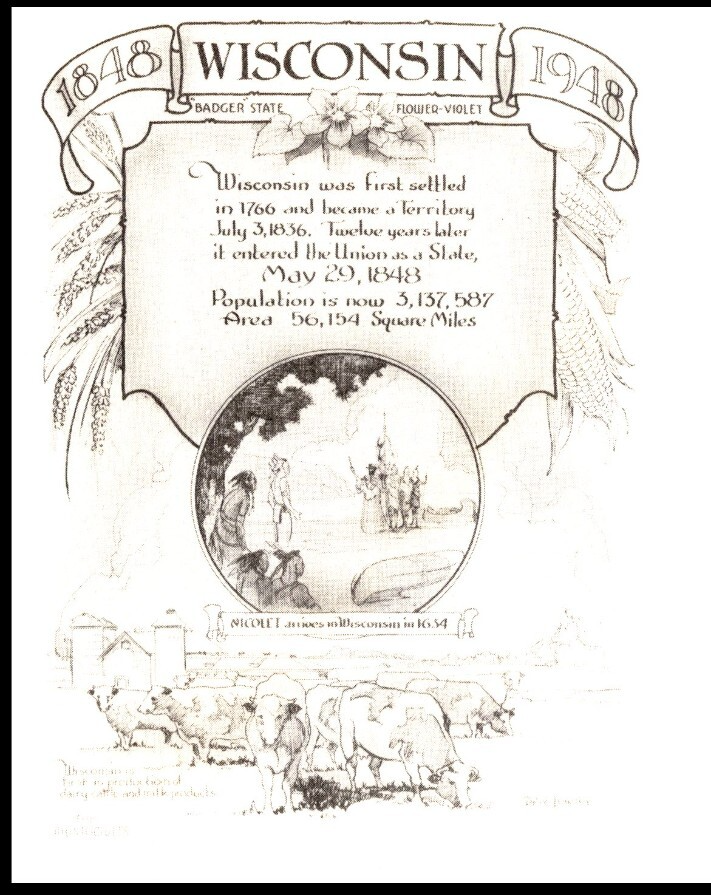 1848 WISCONSIN 1948
"BADGER" STATE FLOWER-VIOLET
Wisconsin was first settled
in 1766 and became a Territory
July 3, 1836. Twelve years later
it entered the Union as a State,
May 29, 1848
Population is now 3,137,587
Area 56,154 Square Miles
NICOLET arrives in Wisconsin in 1634
Wisconsin is
first in production of
dairy cattle and milk products